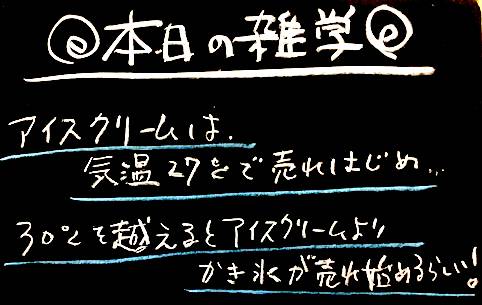 本日の雑学
アイスクリームは、
気温27℃で売れはじめ…
30℃を越えるとアイスクリームより
かき氷が売れ始めるらしい!